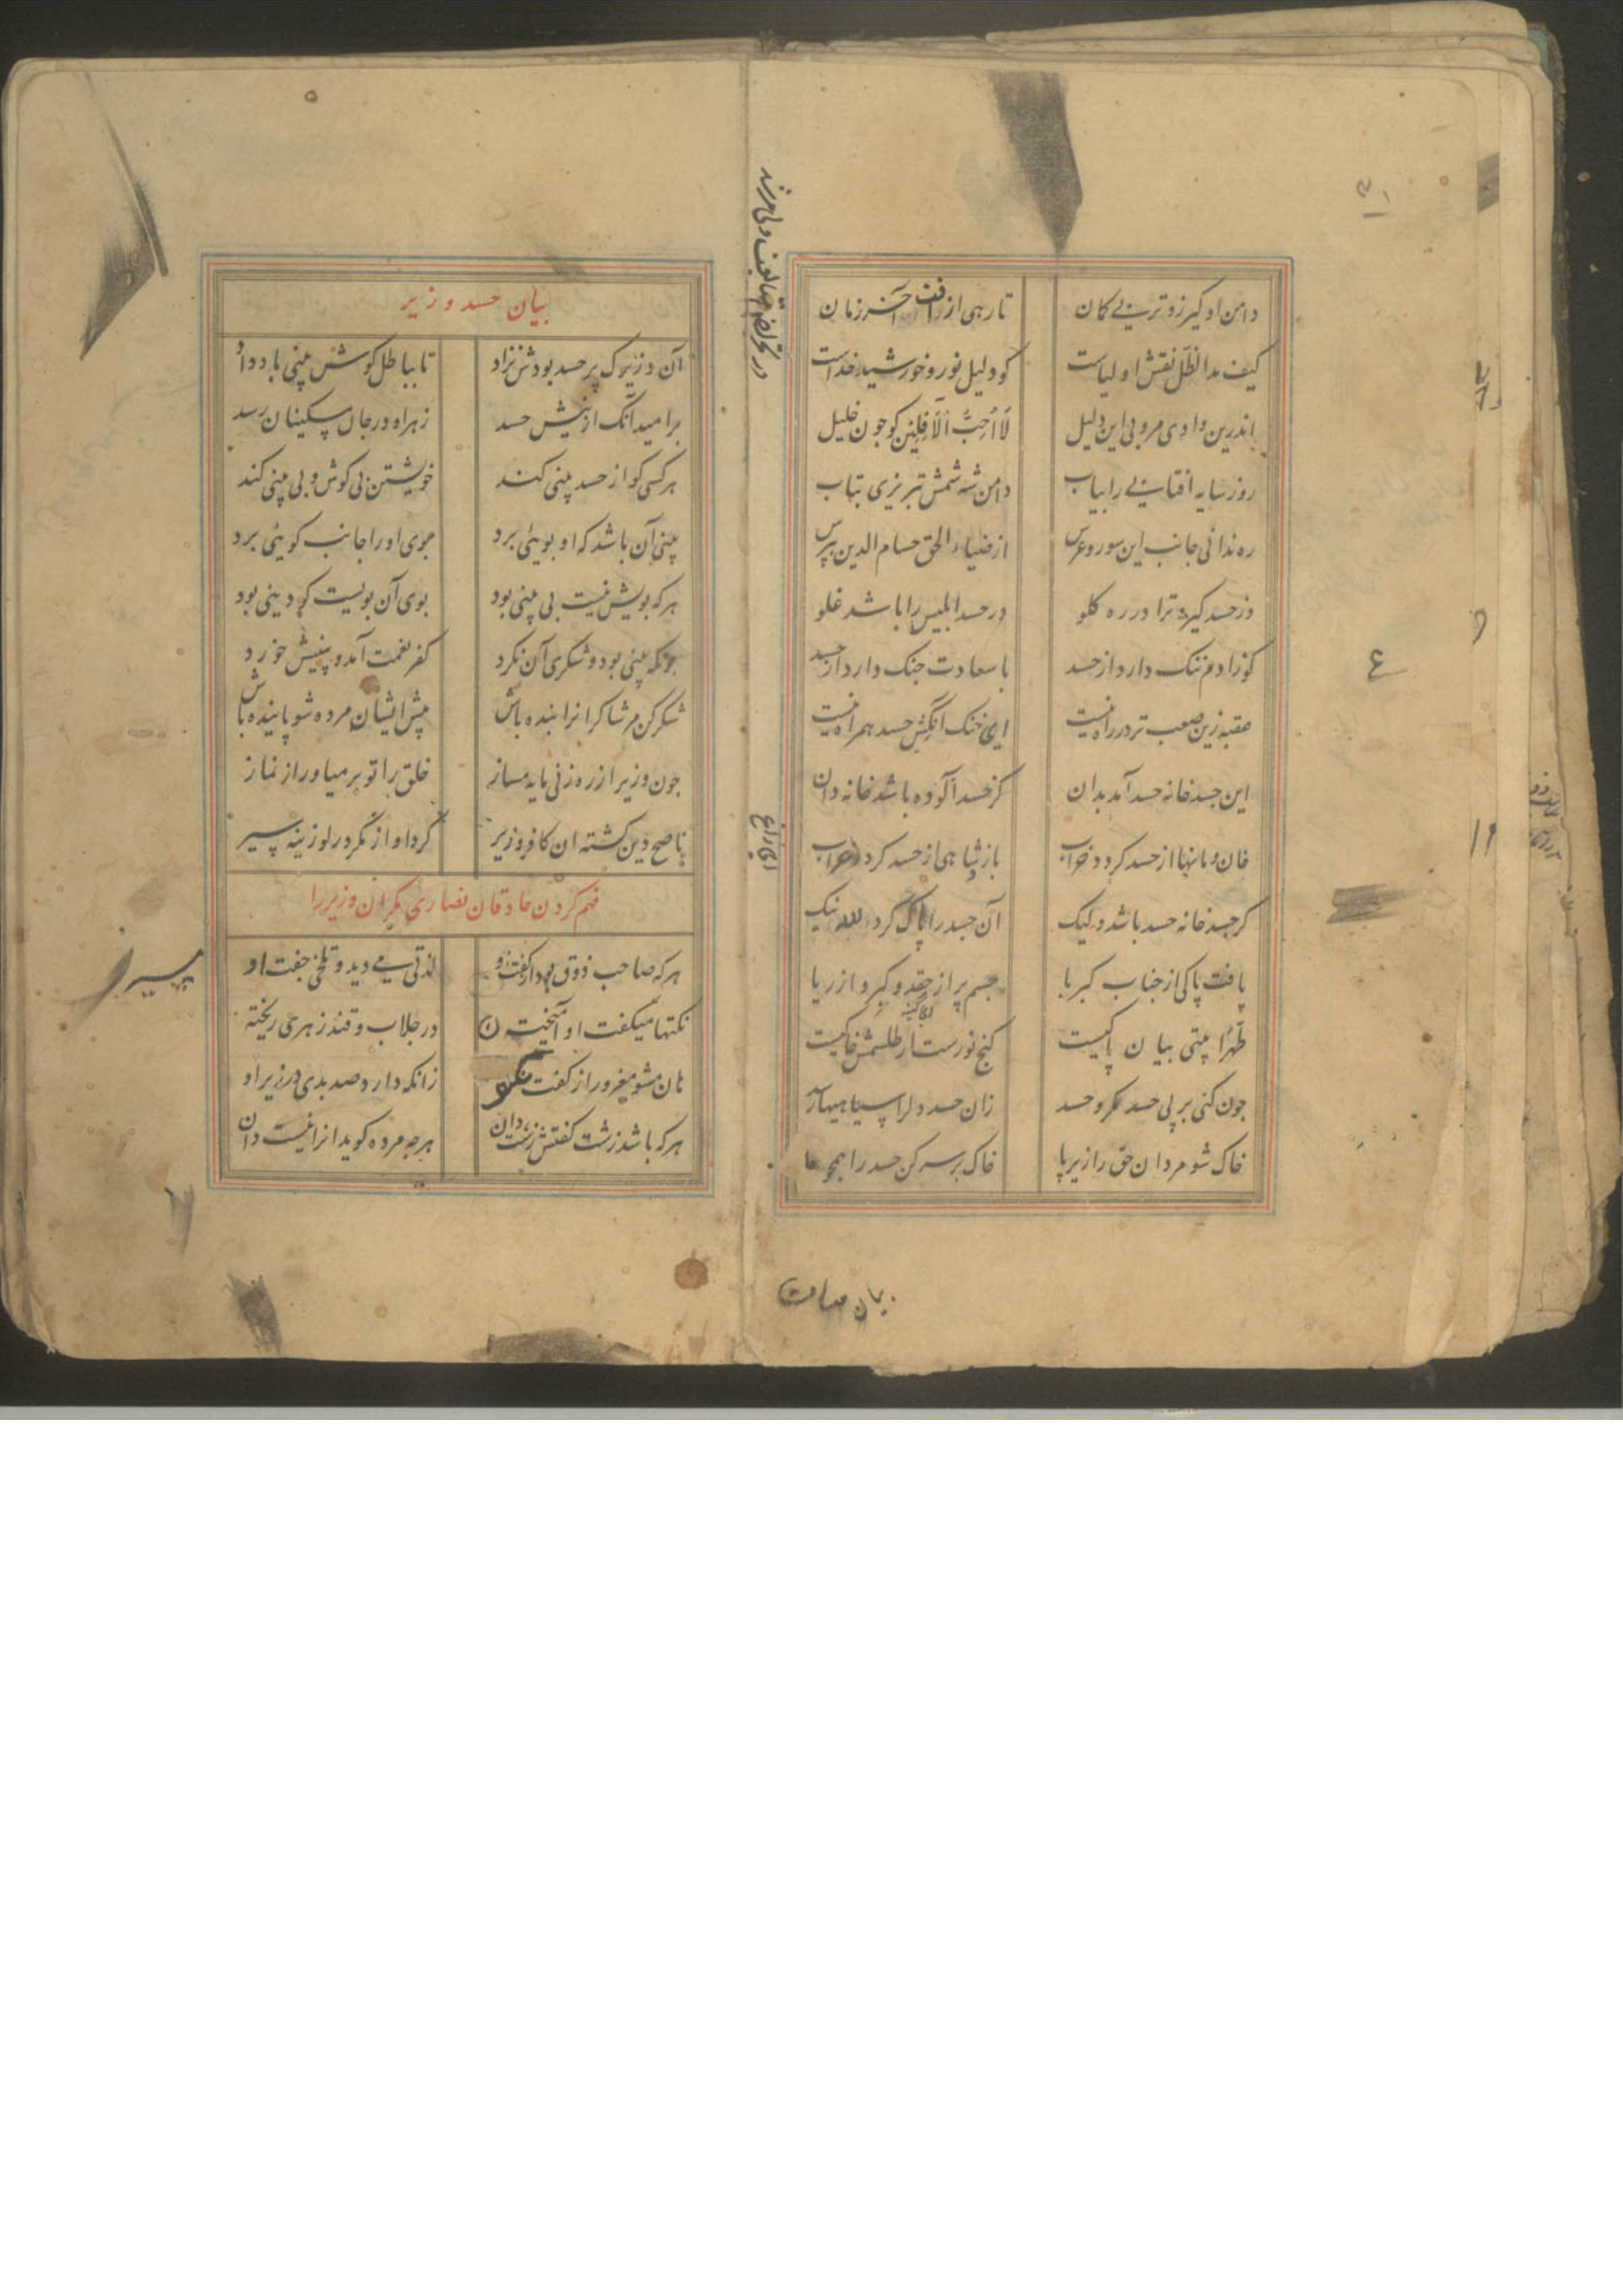 دامن او گیر زوتر بی گمان
تا رهی از آفت آخر زمان
کیف مد الظل نقش اولیاست
کو دلیل نور و خورشید خداست
اندرین وادی مرو بی این دلیل
لَا اُحِبُّ اْلآفِلِین کو جون خلیل
روز سایه آفتابی را بیاب
دامن شه شمش تبریزی بتاب
ره ندانی جانب این سور و عرس
از ضیاء الحق حسام الدین بپرس
ور حسد گیرد ترا در ره کلو
در حسد ابلیس را باشد غلو
کو ز ادم ننک دارد از حسد
با سعادت جنک دارد از حسد
عقبه زین صعب تر در راه نیست
ای خنک آنکش حسد همراه نیست
این جسد خانه حسد آمد بدان
کز حسد آلوده باشد خانه دان
خان و مانها از حسد کردد خراب
باز شاهی از حسد کردد غراب
کر جسد خانه حسد باشد ولیک
آن جسد را پاک کرد الله نیک
یافت پاکی از جناب کبریا
جسم پر از حقد و کبر و از ریا
طَهِّرا بیتی بیان پاکیست
کنج نورست ار طلسمش خاکیست
جون کنی بر بی حسد مکر و حسد
زان حسد دلرا سیاهیها رسد
خاک شو مردان حق را زیر پا
خاک بر سر کن حسد را همچو ما
بیان حسد وزیر
آن وزیرک پر حسد بودش نژاد
تا بباطل کوش و بینی باد داد
بر امید آنک از نیش حسد
زهر او در جان مسکینان رسد
هر کسی کو از حسد بینی کند
خویشتن بی کوش و بی بینی کند
بینی آن باشد که او بویی برد
بوی او را جانب کویی برد
هر که بویش نیست بی بینی بود
بوی آن بویست کو دینی بود
جونکه بینی بود و شکری آن نکرد
کفر نعمت آمد و بینیش خورد
شکر کن مر شاکرانرا بنده باش
پیش ایشان مرده شو پاینده باش
جون وزیر از ره زنی مایه مساز
خلق را تو بر میاور از نماز
ناصح دین کشته ان کافر وزیر
کرد او از مکر در لوزینه سیر
فهم کردن حاذقان نصاری مکر ان وزیر را
هر که صاحب ذوق بود از گفت او
لذتی می دید و تلخی جفت او
نکتها میکفت او آمیخته
در جلاب و قند زهری ریخته
هان مشو مغرور از کفت نکو
زانکه دارد صد بدی در زیر او
هر که باشد زشت کفتش زشت دان
هر جه مرده کوید انرا نیست دان